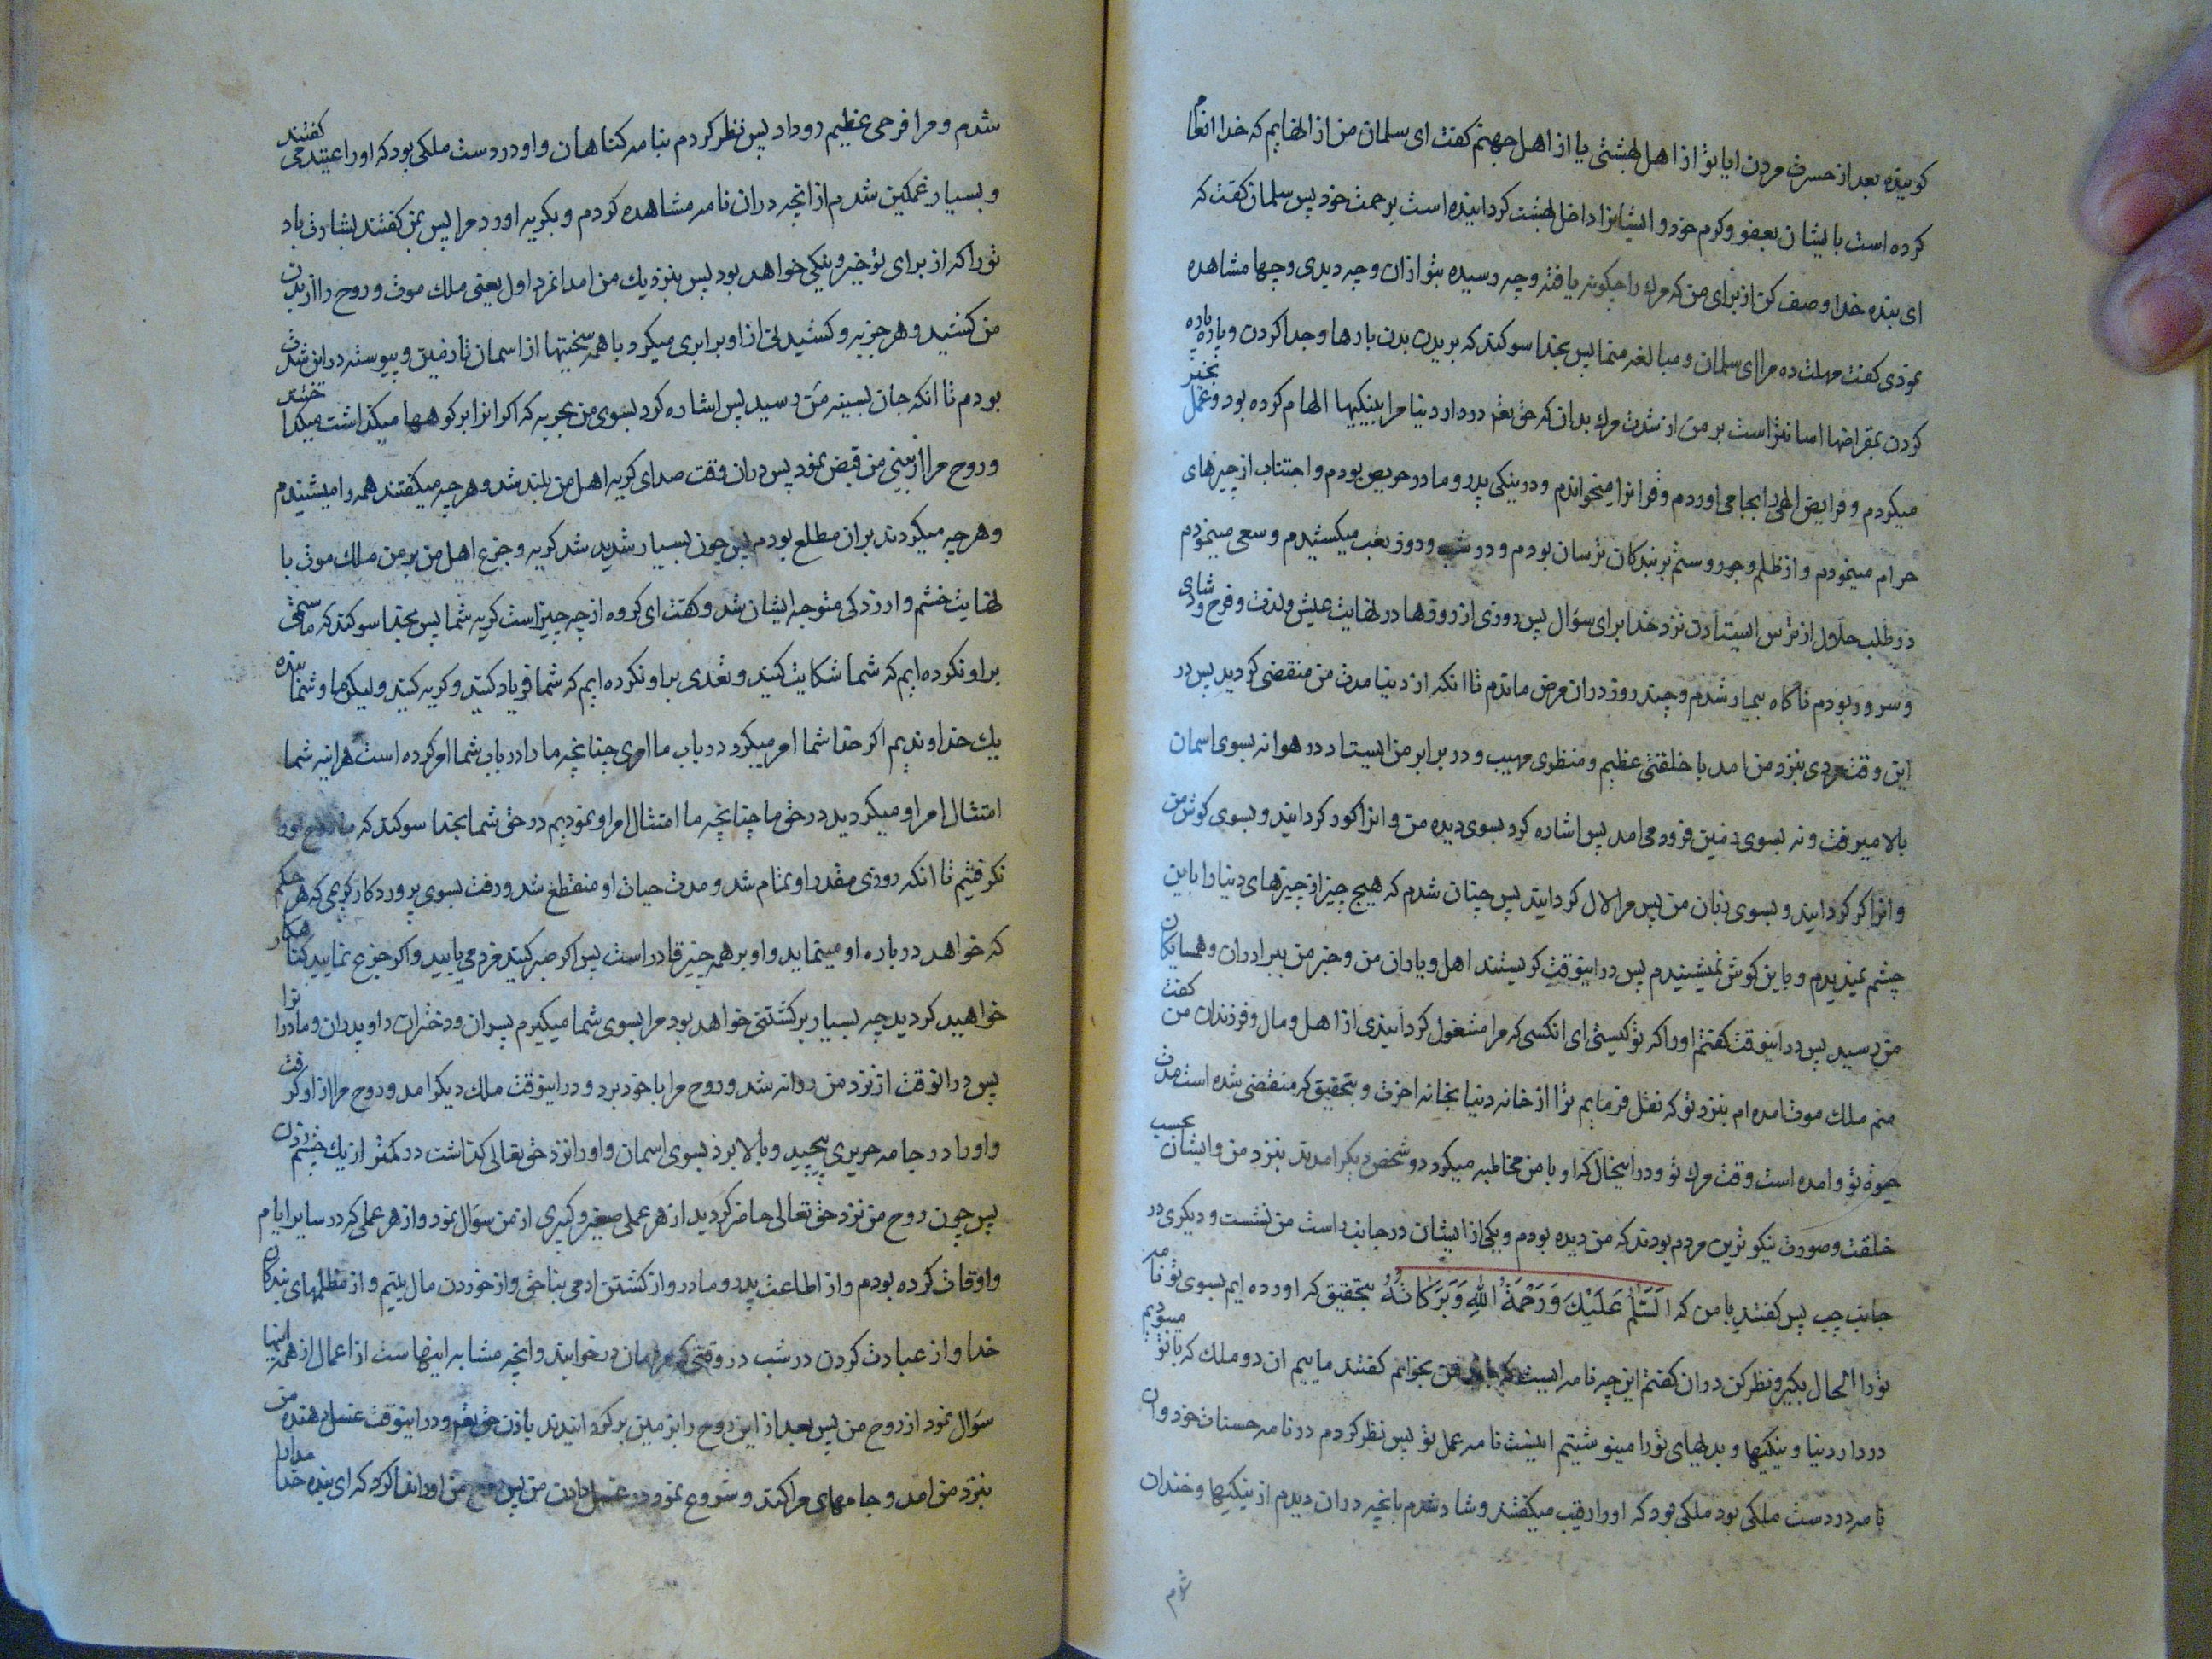 گوینده بعد از حسرت مردن ایا تو از اهل بهشتی یا از اهل جهنم گفت ای سلمان من از انهایم که خدا انعام
کرده است بایشان بعفو و کرم خود و ایشانرا داخل بهشت گردانیده است برحمت خود پس سلمان گفت که
ای بنده خدا وصف کن از برای من که مرك را چگونه یافتهٔ و چه رسیده بتو ازان و چه دیدی و چها مشاهده
نمودی گفت مهلت ده مرا ای سلمان و مبالغه منما پس بخدا سوکند که بریدن بدن بارها و جدا کردن و پاره پاره
کردن بمقراضها اسانتر است بر من از شدت مرك بدان که حق تعم در دار دنیا مرا بنیکیها الهام کرده بود و عمل
میکردم و فرایض الهی را بجا می اوردم و قرانرا میخواندم و در نیکی پدر و مادر حریص بودم و اجتناب از چیزهای
حرام مینمودم و از ظلم و جور و ستم بر بندکان ترسان بودم و در شب و روز تعب میکشیدم و سعی مینمودم
در طلب حلال از ترس ایستادن نزد خدا برای سؤال پس روزی از روزها در نهایت عیش و لذت و فرح و شادی
و سرور بودم ناکاه بیمار شدم و چند روز دران مرض ماندم تا انکه از دنیا مدت من منقضی کردید پس در
این وقت مردی بنزد من امد با خلقتی عظیم و منظری مهیب و در برابر من ایستاد در هوا نه بسوی اسمان
بالا میرفت و نه بسوی زمین فرود می امد پس اشاره کرد بسوی دیده من و انرا کور کردانید و بسوی کوش من
و انرا کر کردانید و بسوی زبان من پس مرا لال کردانید پس چنان شدم که هیچ چیز از چیزهای دنیا را باین
چشم نمیدیدم و باین کوش نمیشنیدم پس در اینوقت کریستند اهل و یاران من و خبر من ببرادران و همسایکان
من رسید پس در اینوقت کفتم اورا که تو کیستی ای انکسی که مرا مشغول کردانیدی از اهل و مال و فرزندان من کفت
منم ملك موت امده ام بنزد تو که نقل فرمایم ترا از خانه دنیا بخانه اخرت و بتحقیق که منقضی شده است مدت
حیوة تو و امده است وقت مرك تو و در اینحال که او با من مخاطبه میکرد دو شخص دیکر امدند بنزد من و ایشان بحسب
خلقت و صورت نیکوترین مردم بودند که من دیده بودم و یکی از ایشان در جانب راست من نشست و دیکری در
جانب چپ پس کفتند با من که اَلسَّلٰمُ عَلَيْكَ وَرَحْمَةُ اللّٰهِ وَبَرَكَاتُهُ بتحقیق که اورده ایم بسوی تو نامه
تورا الحال بکیر و نظر کن دران کفتم این چه نامه ایست که من بخوانم کفتند ماییم ان دو ملك که با تو میبودیم
در دار دنیا و نیکیها و بدیهای تورا مینوشتیم اینست نامه عمل تو پس نظر کردم در نامه حسنات خود و ان
نامه در دست ملکی بود ملکی بود که اورا رقیب میکفتند و شاد شدم بانچه دران دیدم از نیکیها و خندان
شدم
شدم و مرا فرحی عظیم رو داد پس نظر کردم بنامه کناهان و او در دست ملکی بود که اورا عتید می کفتند
و بسیار غمکین شدم از انچه دران نامه مشاهده کردم و بکریه اورد مرا پس بمن کفتند بشارت باد
تورا که از برای تو خیر و نیکی خواهد بود پس بنزدیك من امد انمرد اول یعنی ملك موت و روح را از بدن
من کشید و هر جزبه و کشیدنی از او برابری میکرد با همه سختیها از اسمان تا زمین و پیوسته در این شدت
بودم تا انکه جان بسینه من رسید پس اشاره کرد بسوی من بحربه که اکر انرا بر کوهها میکذاشت میکداختند
و روح مرا از بینی من قبض نمود پس دران وقت صدای کریه اهل من بلند شد و هر چه میکفتند همه را میشنیدم
و هر چه میکردند بران مطلع بودم پس چون بسیار شدید شد کریه و جزع اهل من بر من ملك موت با
نهایت خشم و ازردکی متوجه ایشان شد و کفت ای کروه از چه چیز است کریه شما پس بخدا سوکند که ما ستمی
بر او نکرده ایم که شما شکایت کنید و تعدی بر او نکرده ایم که شما فریاد کنید و کریه کنید ولیکن ما و شما بنده
یك خداوندیم اکر خدا شما امر میکرد در باب ما امری چنانچه ما را در باب شما امر کرده است هراینه شما
امتثال امر او میکردید در حق ما چنانچه ما امتثال امر او نمودیم در حق شما بخدا سوکند که ما روح اورا
نکرفتیم تا انکه روزی مقدر او تمام شد و مدت حیات او منقطع شد و رفت بسوی پروردکار کریمی که هر حکم
که خواهد در باره او مینماید و او بر همه چیز قادر است پس اکر صبر کنید مزد می یابید و اکر جزع نمایید کناهکار
خواهید کردید چه بسیار برکشتنی خواهد بود مرا بسوی شما میکیرم پسران و دختران را و پدران و مادرانرا
پس درانوقت از نزد من روانه شد و روح مرا با خود برد و در اینوقت ملك دیکر امد و روح مرا از او کرفت
و اورا در جامه حریری پیچید و بالا برد بسوی اسمان و اورا نزد حق تعالی کذاشت در کمتر از یك چشم زدن
پس چون روح من نزد حق تعالی حاضر کردید از هر عملی صغیر و کبیری از من سؤال نمود و از هر عملی که در سایر ایام
و اوقات کرده بودم و از اطاعت پدر و مادر و از کشتن ادمی بناحق و از خوردن مال یتیم و از مظلمهای بندکان
خدا و از عبادت کردن در شب در وقتی که مردمان در خوابند و انچه مشابه اینهاست از اعمال از همه اینها
سؤال نمود از روح من پس بعد از این روح را بزمین برکردانیدند باذن حق تعم و در اینوقت غسل دهنده من
بنزد من امد و جامهای مرا کند و شروع نمود در غسل دادن من پس روح من اورا ندا کرد که ای بنده خدا مدارا